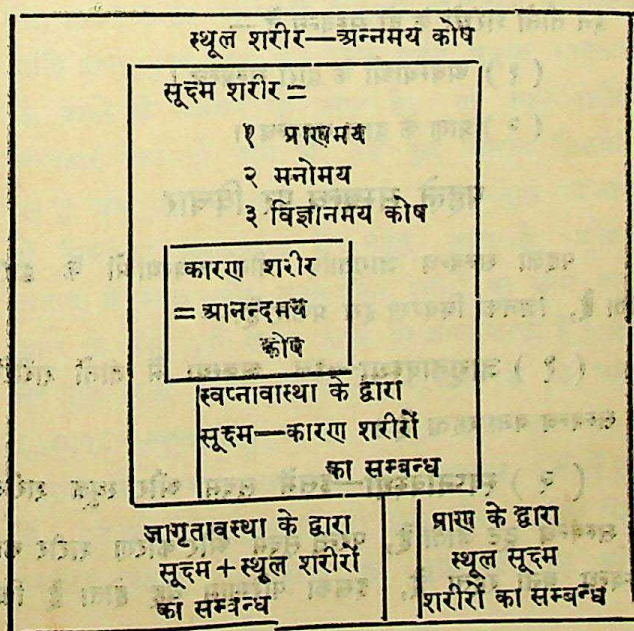 स्थूल शरीर—अन्नमय कोष
सूक्ष्म शरीर =
१ प्राणमय
२ मनोमय
३ विज्ञानमय कोष
कारण शरीर
= आनन्दमय
कोष
स्वप्नावास्था के द्वारा
सूक्ष्म—कारण शरीरों
का सम्बन्ध
जागृतावस्था के द्वारा
सूक्ष्म + स्थूल शरीरों
का सम्बन्ध
प्राण के द्वारा
स्थूल सूक्ष्म
शरीरों का सम्बन्ध